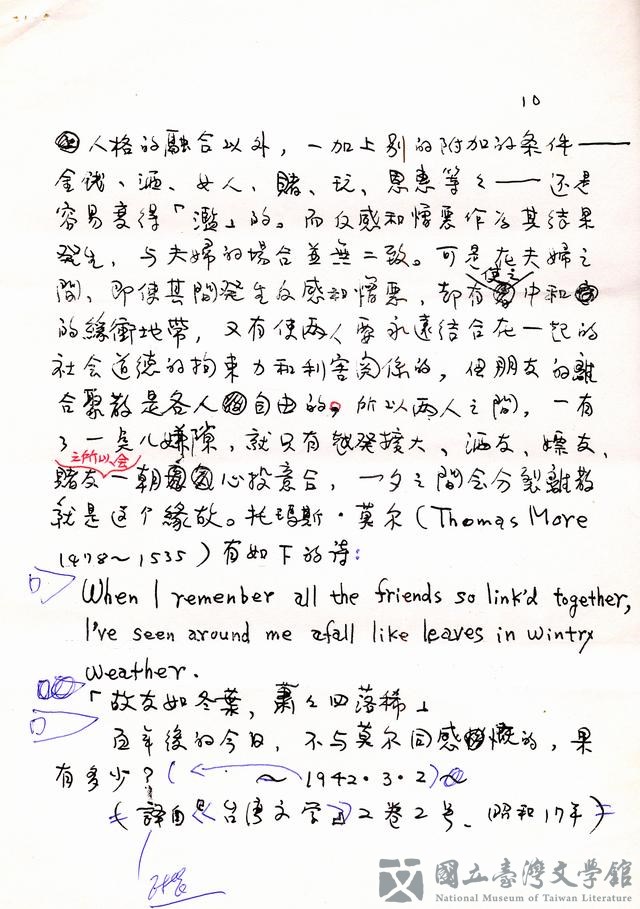 10
人格的融合以外，一加上別的附加的条件——
金钱、酒、女人、賭、玩、恩惠等々——还是
容易変得「濫」的。而反感和憎悪作为其結果
発生，与夫婦的場合並無二致。可是在夫婦之
間，即使其間発生反感和憎悪，却有使之中和
的緣衝地带，又有使两人要永遠结合在一起的
社会道徳的拘束力和利害関係的，但朋友的離
合聚散是各人自由的，所以两人之間，一有
了一点儿嫌隙，就只有越発擴大、酒友、嫖友、
賭友之所以会一朝心投意合，一夕之間会分裂離散
就是这个緣故。托瑪斯·莫尔（Thomas More
1478～1535）有如下的诗：
When I remenber all the friends so link'd together,
I've seen around me afall like leaves in wintry
weather.
「故友如冬葉，蕭々四落稀」
百年後的今日，不与莫尔同感慨的，果
有多少？（～1942·3·2）
（譯自台湾文学2卷2号、昭和17年）
國立臺灣文學館
National Museum of Taiwan Literature